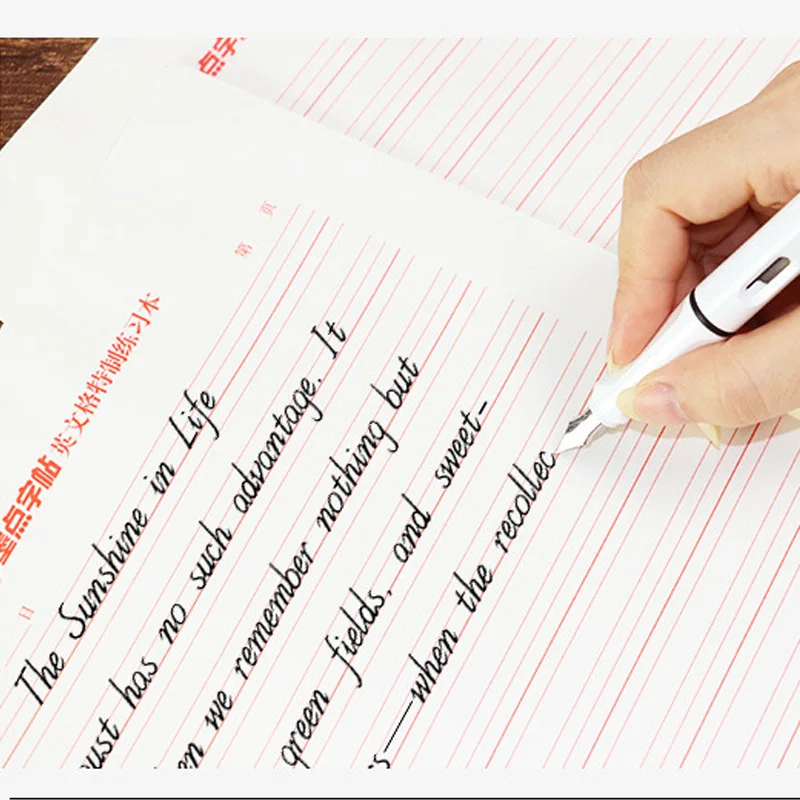 点字
第 页
墨点字帖 英文格特制练习本
日
The Sunshine in Life
ust has no such advantage. It
en we remember nothing but
green fields, and sweet-
s——when the recollec